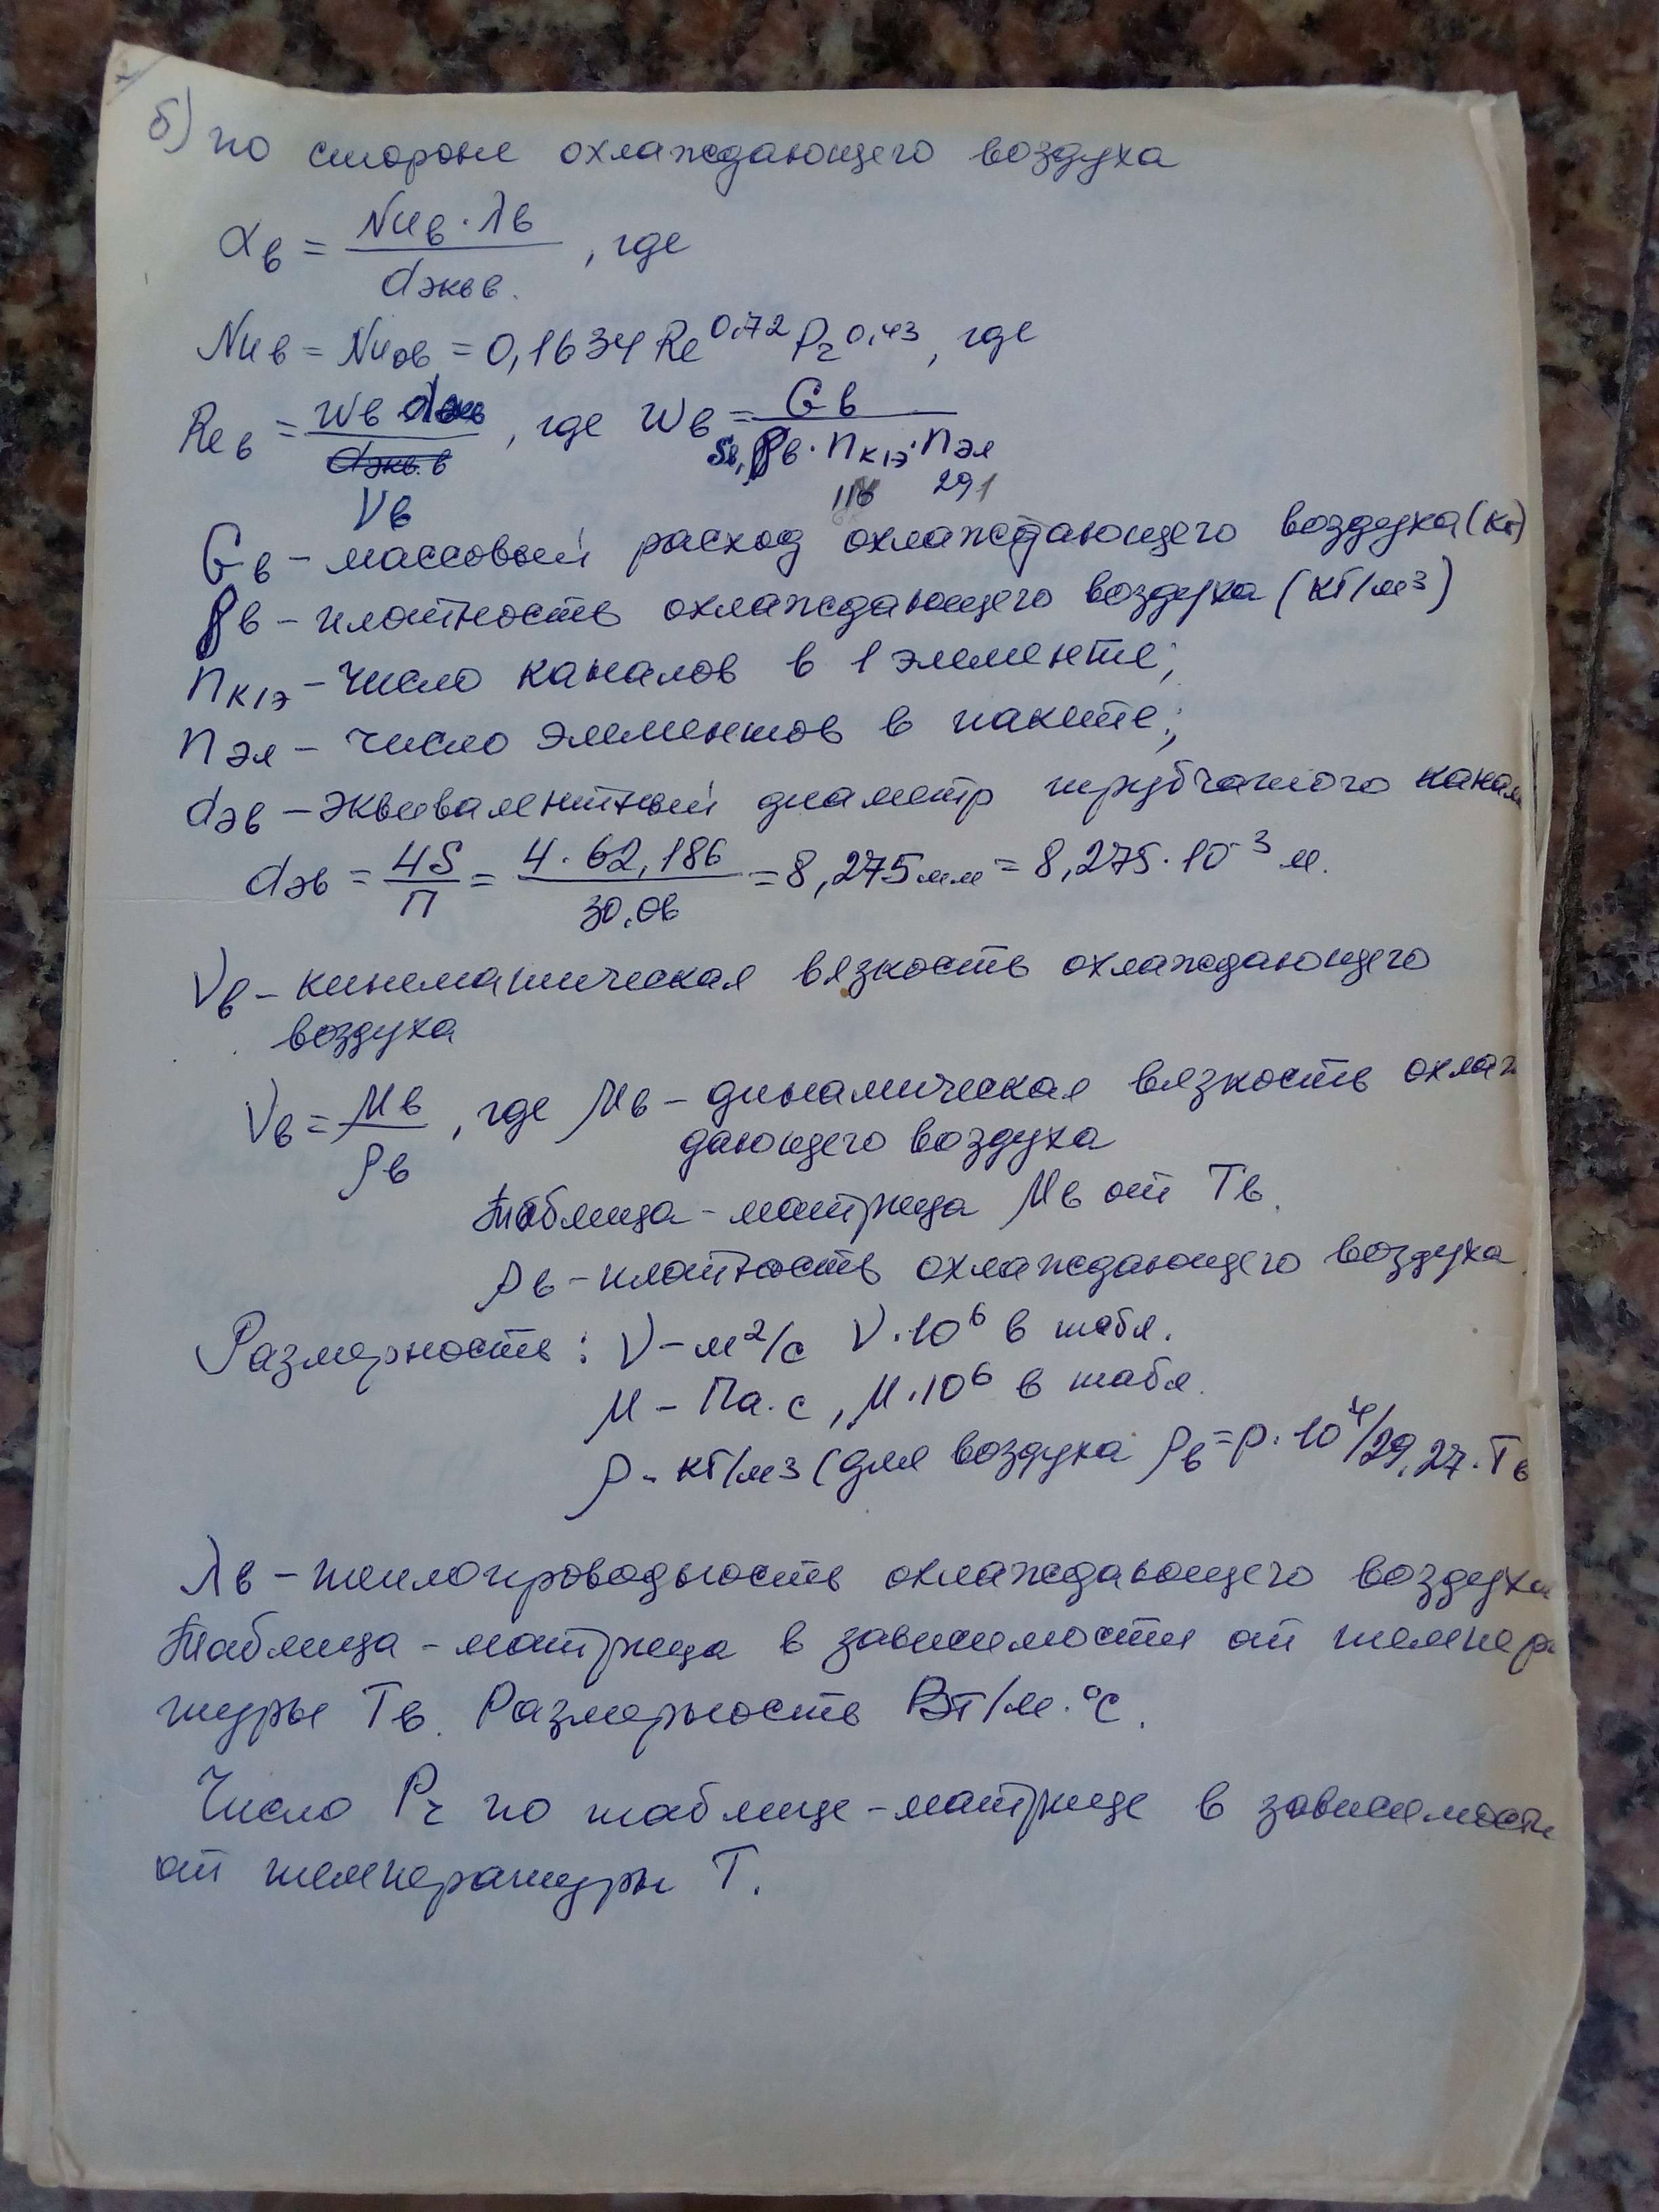 б) по стороне охлаждающего воздуха
αв = Nuв · λв / dэкв в. , где
Nuв = Nuов = 0,1634 Re^0,72 Pr^0,43, где
Reв = wв dэкв / νв , где wв = Gв / Sв, ρв · nк1э · nэл
116 291
Gв – массовый расход охлаждающего воздуха (кг)
ρв – плотность охлаждающего воздуха (кг/м³)
nк1э – число каналов в 1 элементе;
nэл – число элементов в пакете;
dэв – эквивалентный диаметр трубчатого канал
dэв = 4S / П = 4 · 62,186 / 30,06 = 8,275 мм = 8,275 · 10⁻³ м.
νв – кинематическая вязкость охлаждающего
воздуха
νв = μв / ρв , где μв – динамическая вязкость охлаж
дающего воздуха
Таблица – матрица μв от Тв.
ρв – плотность охлаждающего воздуха
Размерность: ν – м²/с ν·10⁶ в табл.
μ – Па·с, μ·10⁶ в табл.
ρ – кг/м3 (для воздуха ρв = р·10⁴/29,27·Тв
λв – теплопроводность охлаждающего воздуха
Таблица – матрица в зависимости от темпера
туры Тв. Размерность Вт/м·°С.
Число Pr по таблице – матрице в зависимости
от температуры Т.